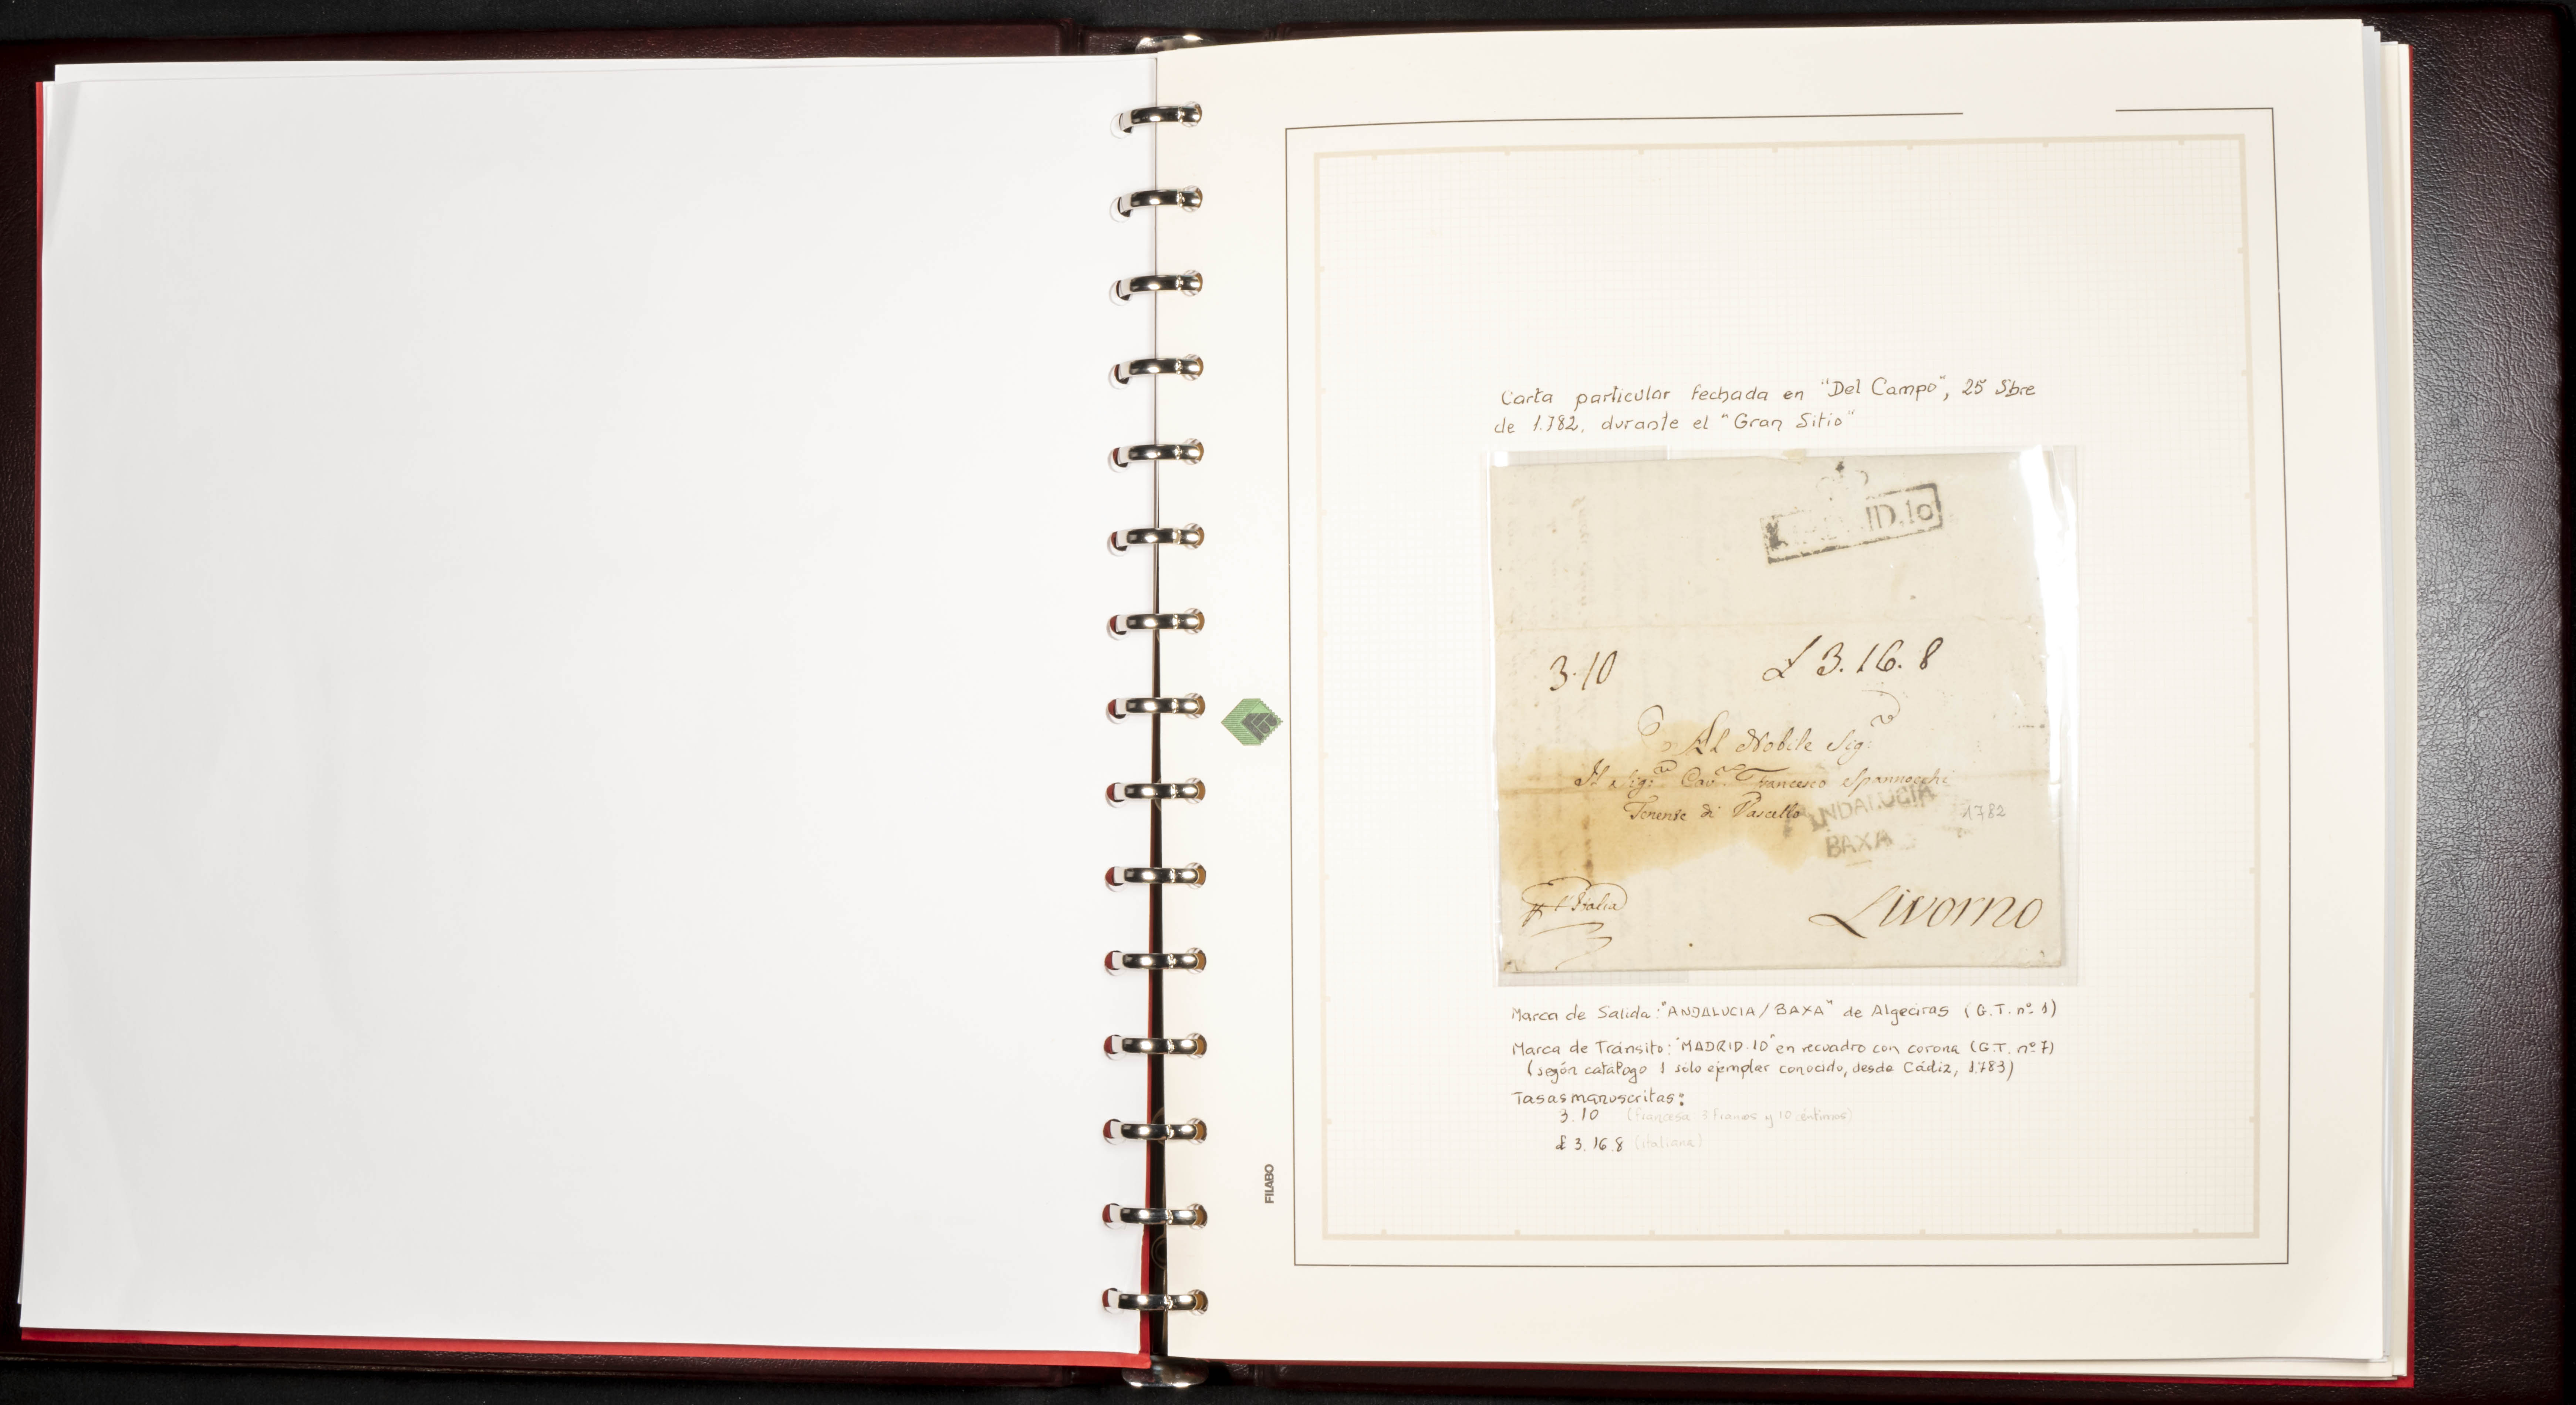 Carta particular fechada en "Del Campo", 25 Sbre
de 1.782, durante el "Gran Sitio"
ID.10
3.10
£ 3.16.8
Al Nobile Sig:
Il Sig:re Cav:re Francesco Spannocchi
Tenente di Vascello
ANDALUCIA
BAXA
1782
p l'Italia
Livorno
Marca de Salida: "ANDALUCIA/BAXA" de Algeciras (G.T. nº 1)
Marca de Tránsito: "MADRID.10" en recuadro con corona (G.T. nº 7)
(según catálogo 1 sólo ejemplar conocido, desde Cádiz, 1.783)
Tasas manuscritas:
3.10 (francesa 3 francos y 10 céntimos)
£ 3.16.8 (italiana)
FILABO